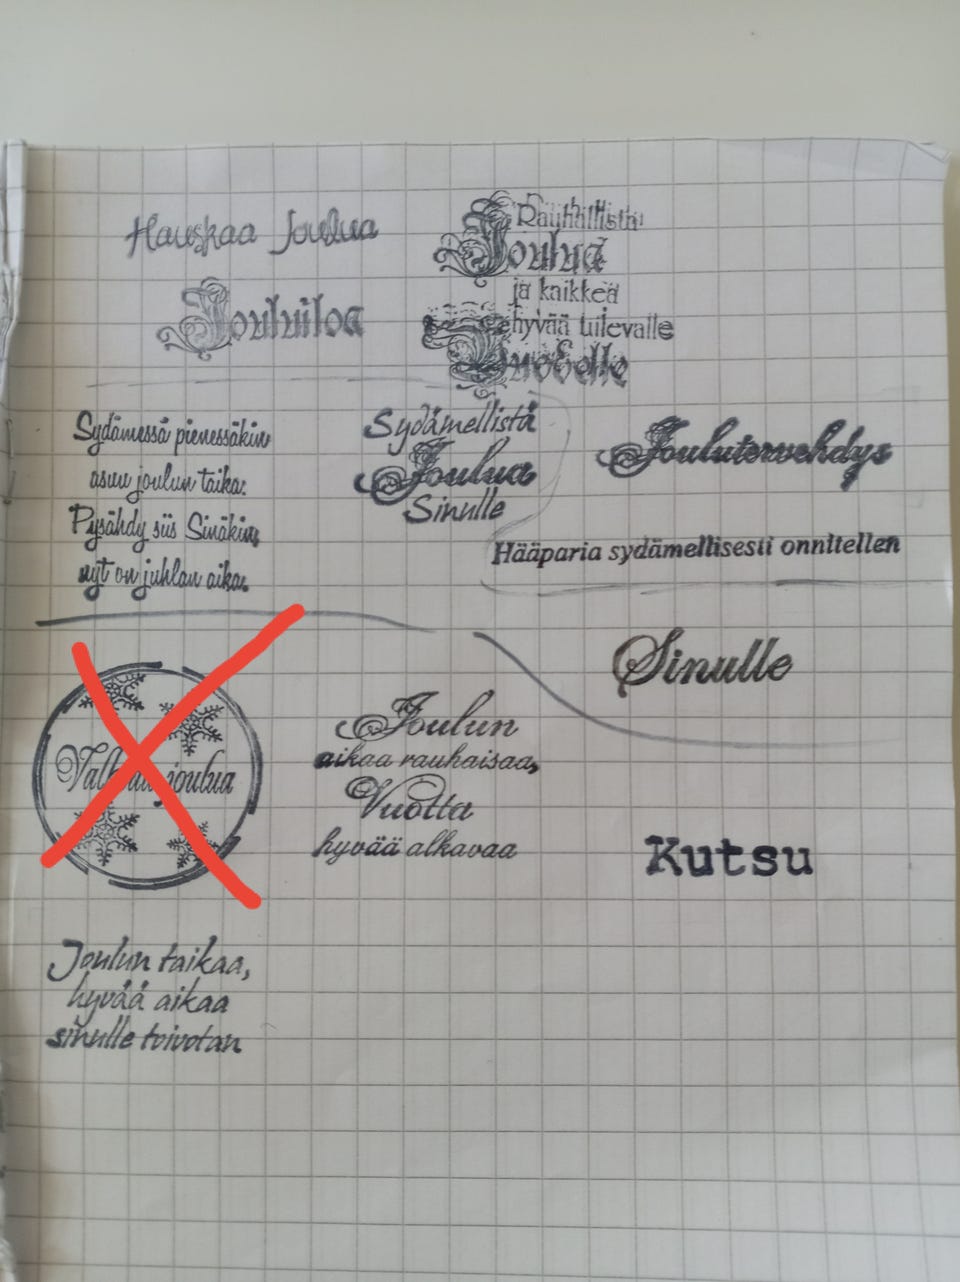 Hauskaa Joulua
Jouluiloa
Rauhallista
Joulua
ja kaikkea
hyvää tulevalle
Vuodelle
Sydämessä pienessäkin
asuu joulun taika.
Pysähdy siis Sinäkin,
nyt on juhlan aika.
Sydämellistä
Joulua
Sinulle
Joulutervehdys
Hääparia sydämellisesti onnitellen
Sinulle
Valkeaa joulua
Joulun
aikaa rauhaisaa,
Vuotta
hyvää alkavaa
Kutsu
Joulun taikaa,
hyvää aikaa
sinulle toivotan